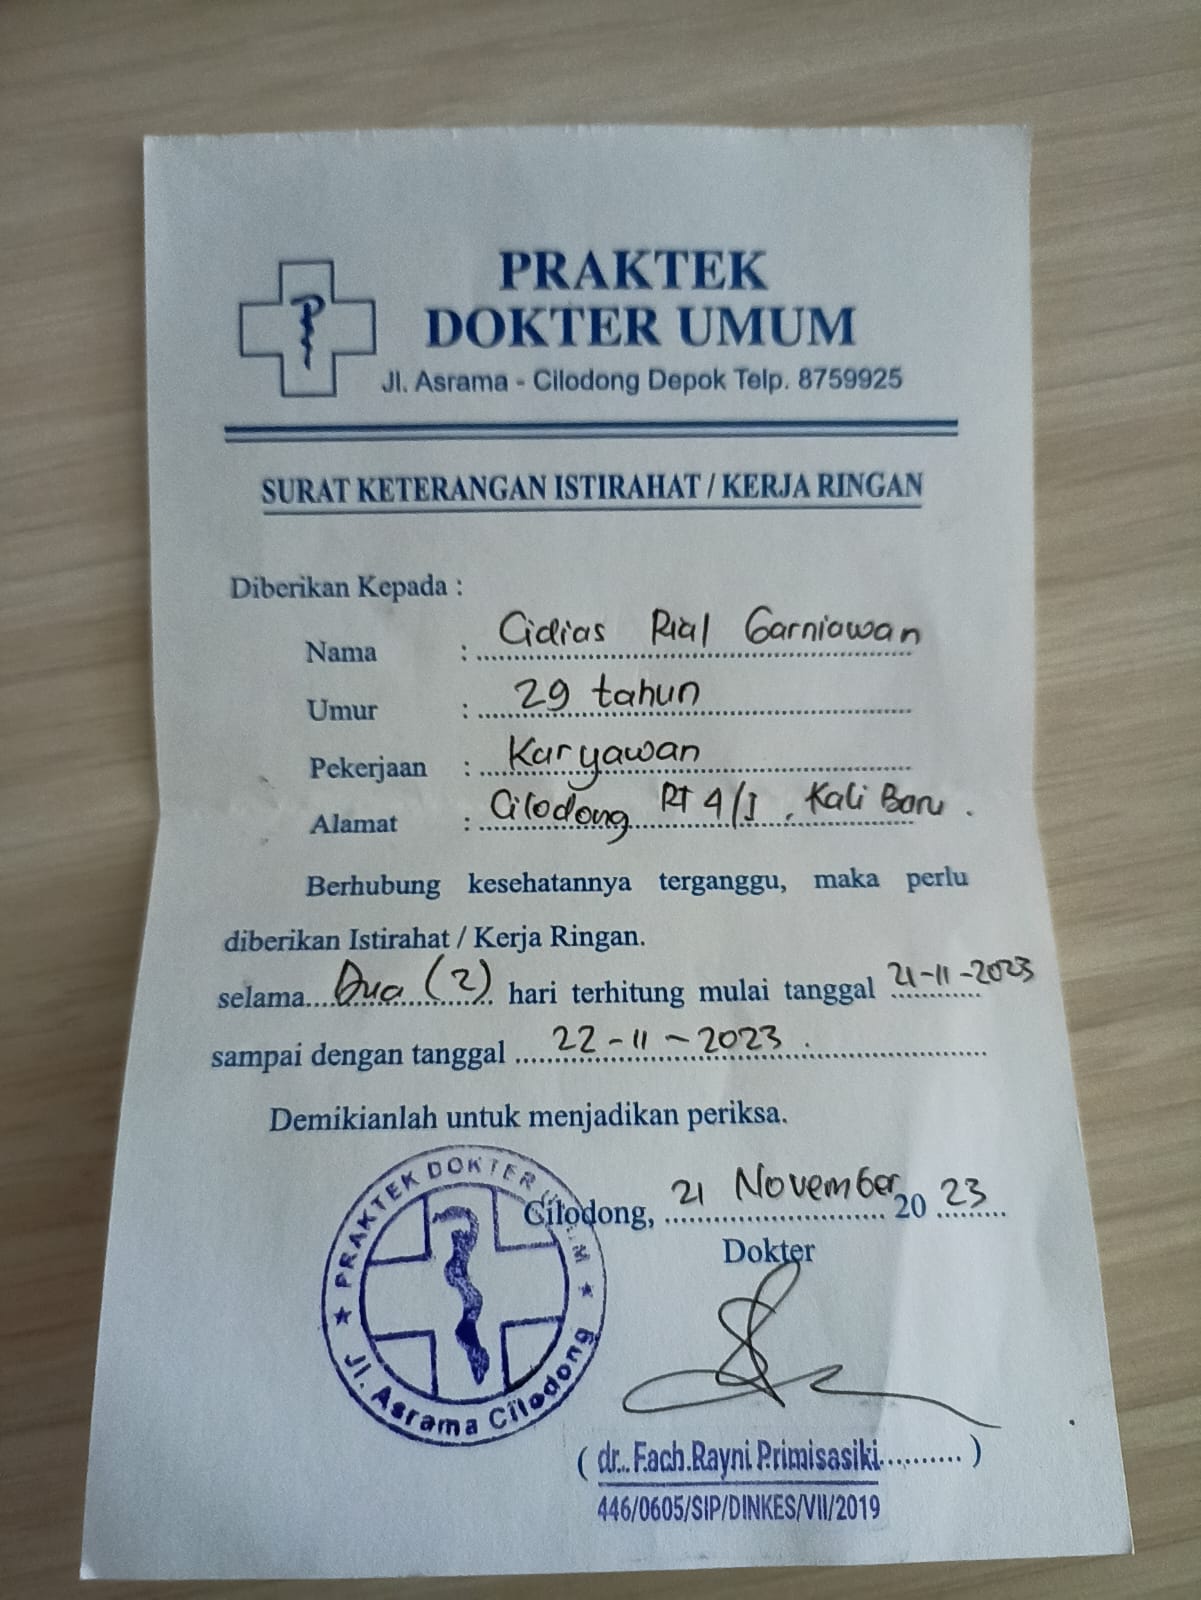 PRAKTEK
DOKTER UMUM
Jl. Asrama - Cilodong Depok Telp. 8759925
SURAT KETERANGAN ISTIRAHAT / KERJA RINGAN
Diberikan Kepada :
Nama : Cidias Rial Garniawan
Umur : 29 tahun
Pekerjaan : Karyawan
Alamat : Cilodong RT 4/I , Kali Baru .
Berhubung kesehatannya terganggu, maka perlu
diberikan Istirahat / Kerja Ringan.
selama.... Dua (2) hari terhitung mulai tanggal 21-11-2023
sampai dengan tanggal 22-11-2023 .
Demikianlah untuk menjadikan periksa.
Cilodong, 21 November 20 23
Dokter
PRAKTEK DOKTER UMUM
Jl. Asrama Cilodong
( dr. Fach.Rayni Primisasiki.......... )
446/0605/SIP/DINKES/VII/2019